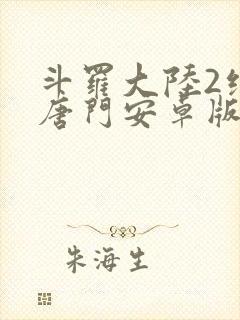 斗羅大陸2
唐門安卓版
朱海生